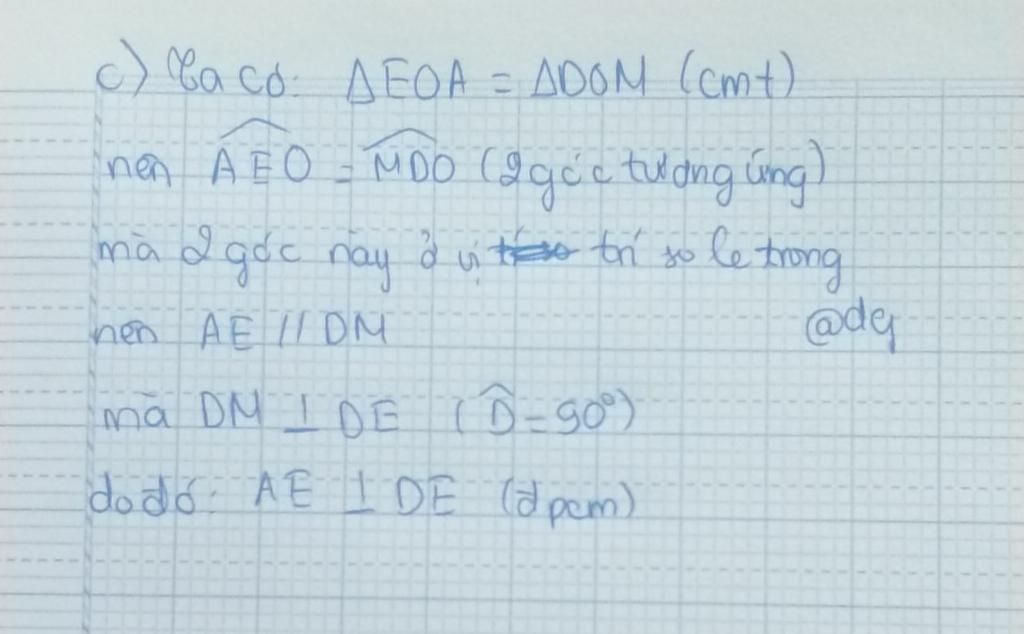 c) Ta có: ΔEOA = ΔDOM (cmt)
nên \widehat{AEO} = \widehat{MDO} (2 góc tương ứng)
mà 2 góc này ở vị trí so le trong
nên AE // DM
@dq
mà DM ⊥ DE (\widehat{D} = 90°)
do đó: AE ⊥ DE (đpcm)